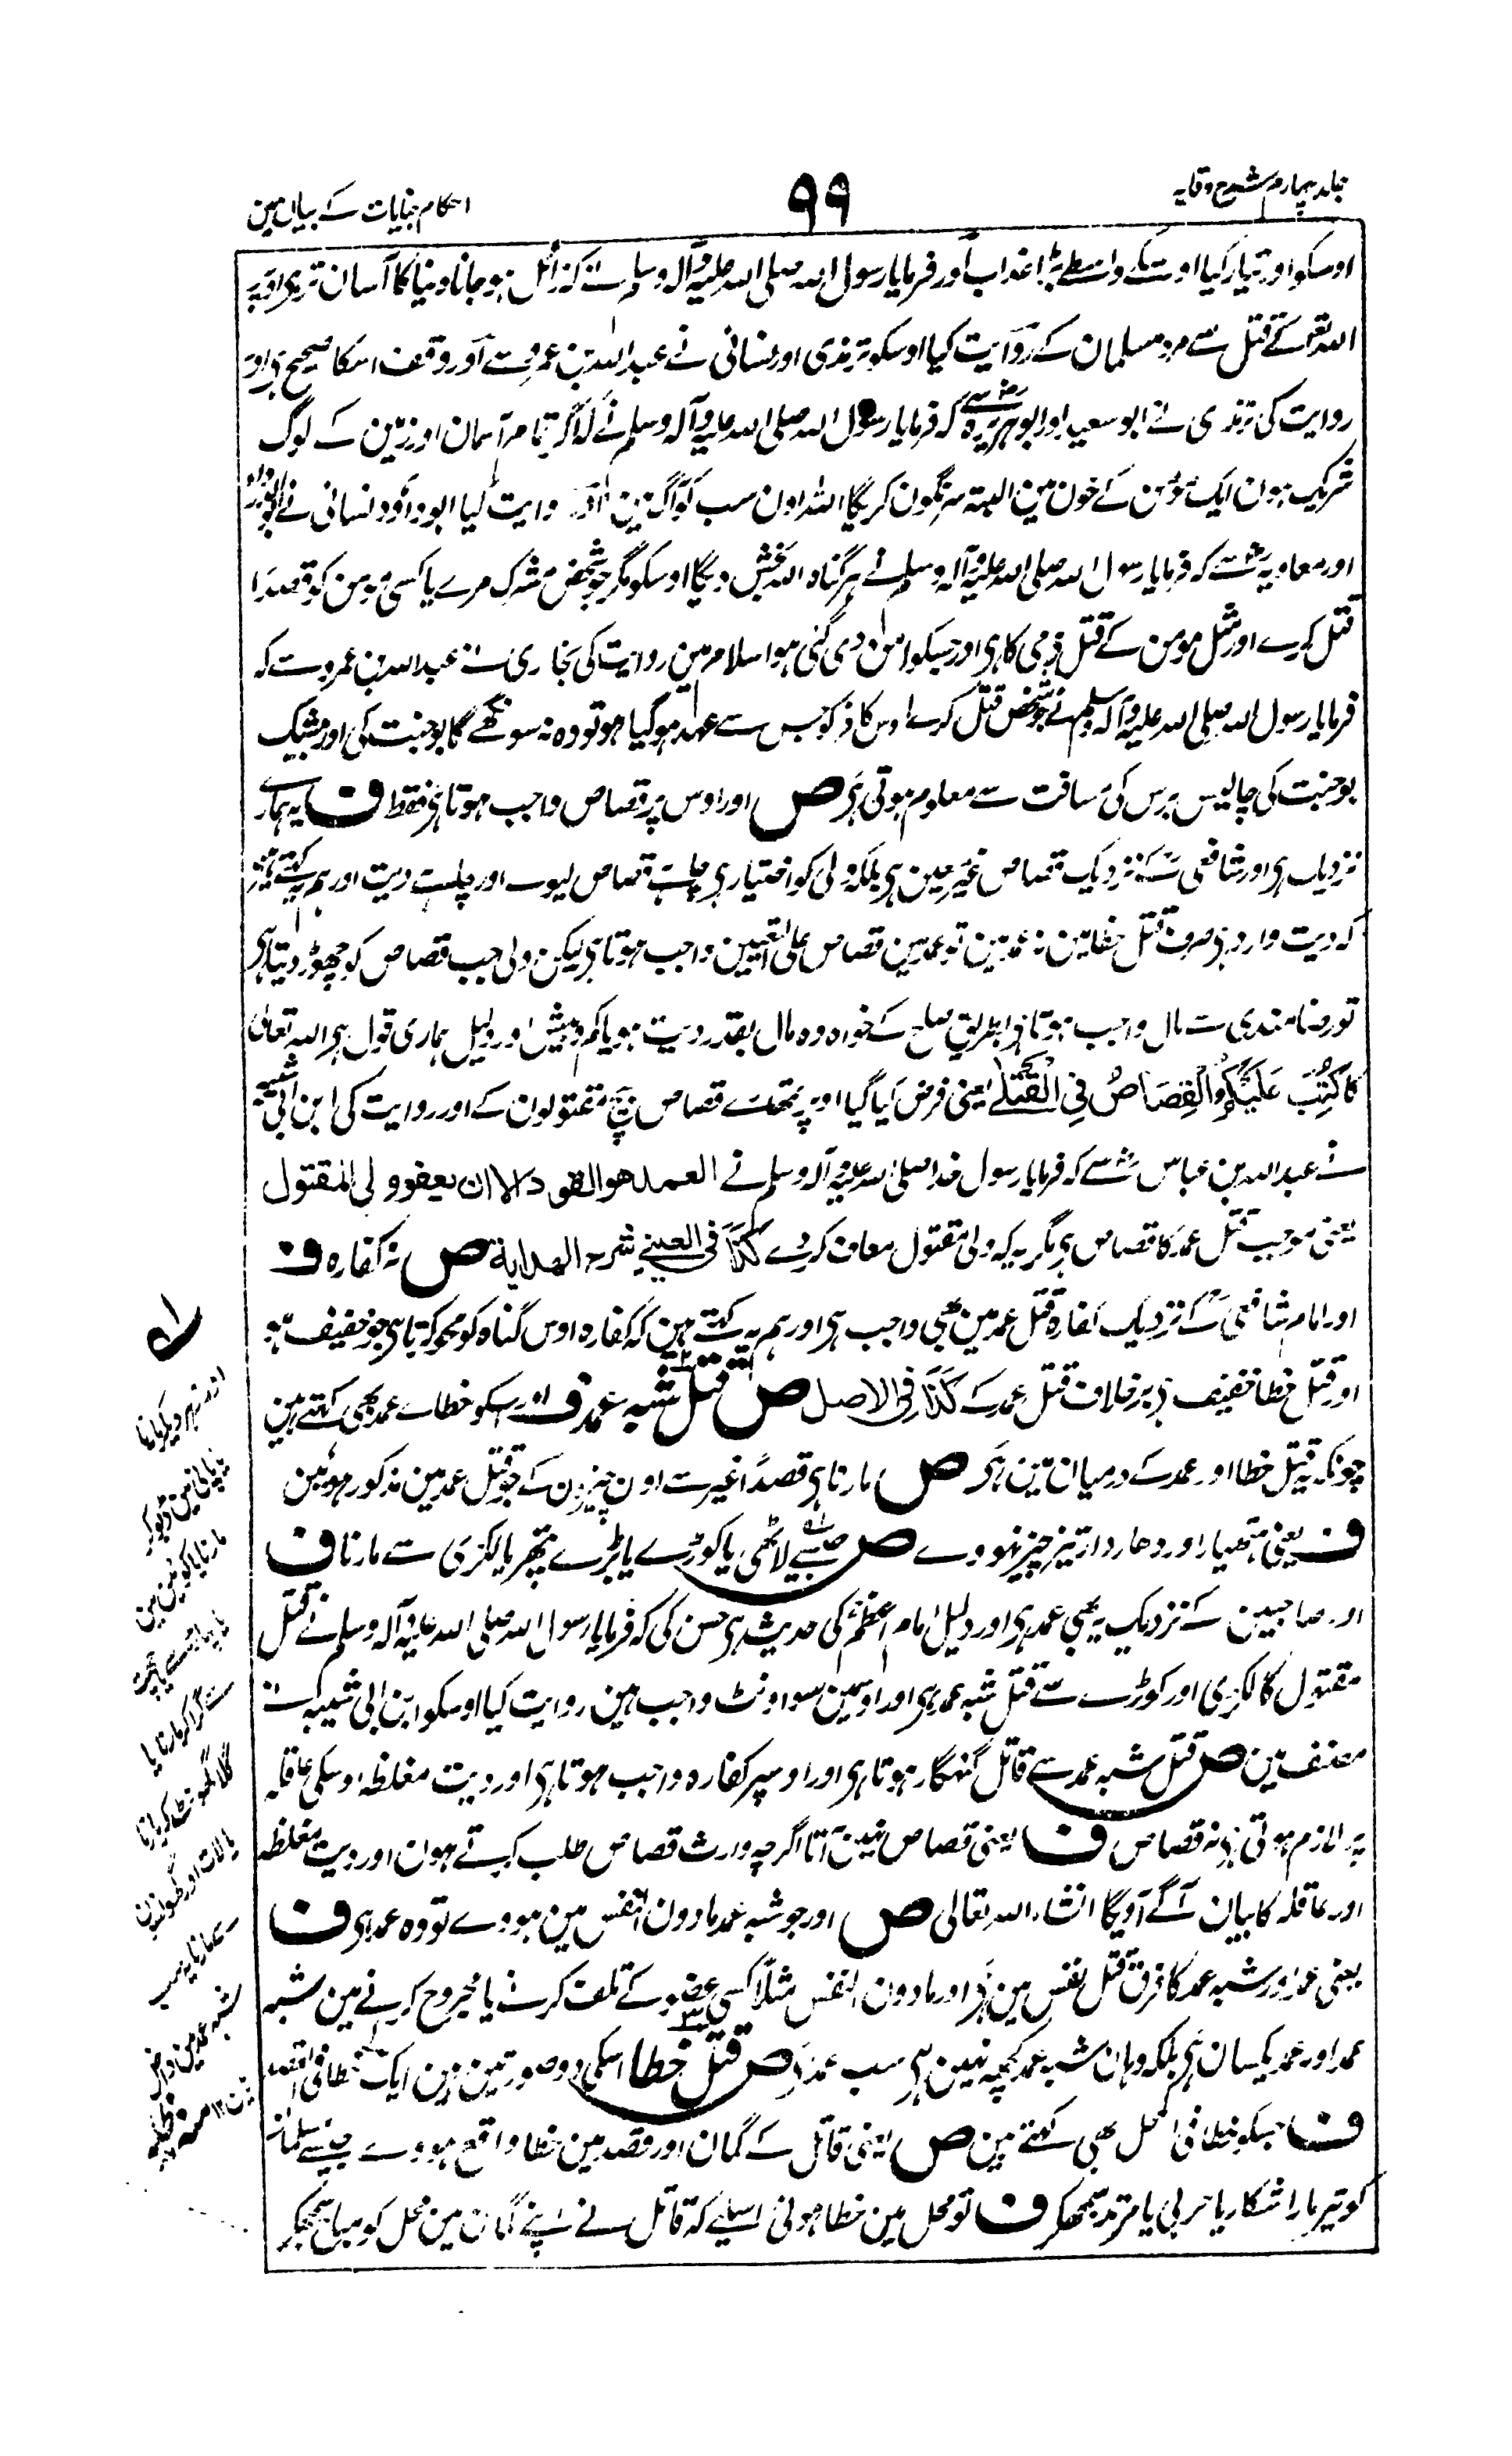 جلد چہارم شرح وقایہ
۹۹
احکام جنایات کے بیان مین
اوسکو اور تیار کیا اوسکے واسطے بڑا عذاب اور فرمایا رسول اللہ صلی اللہ علیہ وآلہ وسلم نے کہ زائل ہو جانا دنیا کا آسان تر ہی اوپر
اللہ تعم کے قتل سے مرد مسلمان کے روایت کیا اوسکو ترمذی اور نسائی نے عبد اللہ بن عمرو سے اور وقف اسکا صحیح ہی اور
روایت کی ترمذی نے ابو سعید اور ابو ہریرہ رض سے کہ فرمایا رسول اللہ صلی اللہ علیہ وآلہ وسلم نے کہ اگر تمام آسمان اور زمین کے لوگ
شریک ہون ایک مومن کے خون مین البتہ سرنگون کریگا اللہ اون سب کو آگ مین اور روایت کیا ابو داؤد نسائی نے
اور معاویہ رض سے کہ فرمایا رسول اللہ صلی اللہ علیہ وآلہ وسلم نے ہر گناہ اللہ بخش دیگا اوسکو مگر جو شخص مشرک مرے یا کسی مومن کو قصدًا
قتل کرے اور مثل مومن کے قتل ذمی کا ہی اور جسکو امن دی گئی ہو اسلام مین روایت کی بخاری نے عبد اللہ بن عمرو سے کہ
فرمایا رسول اللہ صلی اللہ علیہ وآلہ وسلم نے جو شخص قتل کرے اوس کافر کو جس سے عہد ہو گیا ہو تو وہ نہ سونگھے گا بو جنت کی اور بیشک
بو جنت کی چالیس برس کی مسافت سے معلوم ہوتی ہی ص اور اوس پر قصاص واجب ہوتا ہی فقط ف یہ ہمارے
نزدیک ہی اور شافعی رح کے نزدیک قصاص غیر معین ہی بلکہ ولی کو اختیار ہی چاہے قصاص لیوے اور چاہے دیت اور ہم یہ کہتے ہین
کہ دیت وارد ہی صرف قتل خطا مین نہ عمد مین تو عمد مین قصاص علی التعیین واجب ہوتا ہی لیکن ولی جب قصاص کو چھوڑ دیتا ہی
تو رضامندی سے مال واجب ہوتا ہی بطریق صلح کے خواہ وہ مال بقدر دیت ہو یا کم و بیش اور دلیل ہماری قول ہی اللہ تعالی
کا كُتِبَ عَلَيْكُمُ الْقِصَاصُ فِي الْقَتْلٰى یعنی فرض کیا گیا اوپر تمھارے قصاص بیچ مقتولون کے اور روایت کی ابن ابی شیبہ
نے عبد اللہ بن عباس رض سے کہ فرمایا رسول خدا صلی اللہ علیہ وآلہ وسلم نے العمد هو القود الا ان يعفو ولى المقتول
یعنی موجب قتل عمد کا قصاص ہی مگر یہ کہ ولی مقتول معاف کردے كذا فى العينى شرح الهداية ص نہ کفارہ ف
اور امام شافعی رح کے نزدیک کفارہ قتل عمد مین بھی واجب ہی اور ہم یہ کہتے ہین کہ کفارہ اوس گناہ کو محو کرتا ہی جو خفیف ہو
اور قتل خطا خفیف ہی بہ خلاف قتل عمد کے كذا فى الاصل ص قتل شبہ عمد ف اور اسکو خطائے عمد بھی کہتے ہین
چونکہ یہ قتل خطا اور عمد کے درمیان مین ہی ص مارنا ہی قصدًا غیر سے اون چیزون کے جو قتل عمد مین مذکور ہوئین
ف یعنی ہتھیار اور دھاردار تیز چیز نہووے ص جیسے لاٹھی یا کوڑے یا بڑے پتھر یا لکڑی سے مارنا ف
اور صاحبین کے نزدیک یہ بھی عمد ہی اور دلیل امام اعظم رح کی حدیث ہی حسن کی کہ فرمایا رسول اللہ صلی اللہ علیہ وآلہ وسلم نے قتل
مقتول کا لکڑی اور کوڑے سے قتل شبہ عمد ہی اور اوسمین سو اونٹ واجب ہین روایت کیا اوسکو ابن ابی شیبہ نے
مصنف مین ص قتل شبہ عمد سے قاتل گنہگار ہوتا ہی اور اوسپر کفارہ واجب ہوتا ہی اور دیت مغلظہ اوسکی عاقلہ
پر لازم ہوتی ہی نہ قصاص ف یعنی قصاص نہین آتا اگرچہ وارث قصاص طلب کرتے ہون اور دیت مغلظہ
اور عاقلہ کا بیان آگے آویگا انشاء اللہ تعالی ص اور جو شبہ عمد مادون النفس مین ہووے تو وہ عمد ہی ف
یعنی عمد اور شبہ عمد کا فرق قتل نفس مین ہی اور مادون النفس مثلًا کسی عضو کے تلف کرنے یا مجروح کرنے مین شبہ
عمد اور عمد یکسان ہی بلکہ وہان شبہ عمد کچھ نہین ہی سب عمد ہی ص قتل خطا اسکی دو صورتین ہین ایک خطا فی القصد
ف جسکو خطا فی المحل بھی کہتے ہین ص یعنی قاتل کے گمان اور قصد مین خطا واقع ہووے جیسے مسلمان
کو تیر مارا شکار یا حربی یا مرتد سمجھکر ف تو محل مین خطا ہوئی اسلیے کہ قاتل نے اپنے گمان مین محل کو مباح سمجھکر
اور زہر دیکر مارنا
یا پانی مین ڈبو کر
مارنا یا کوئین مین
یا پہاڑ سے یا چھت
سے گرا کر مارنا یا
گلا گھونٹ کر مارنا
یا لات اور گھونسون
سے مارنا یہ سب
شبہ عمد مین داخل
ہین ۱۲ منہ مدظلہ